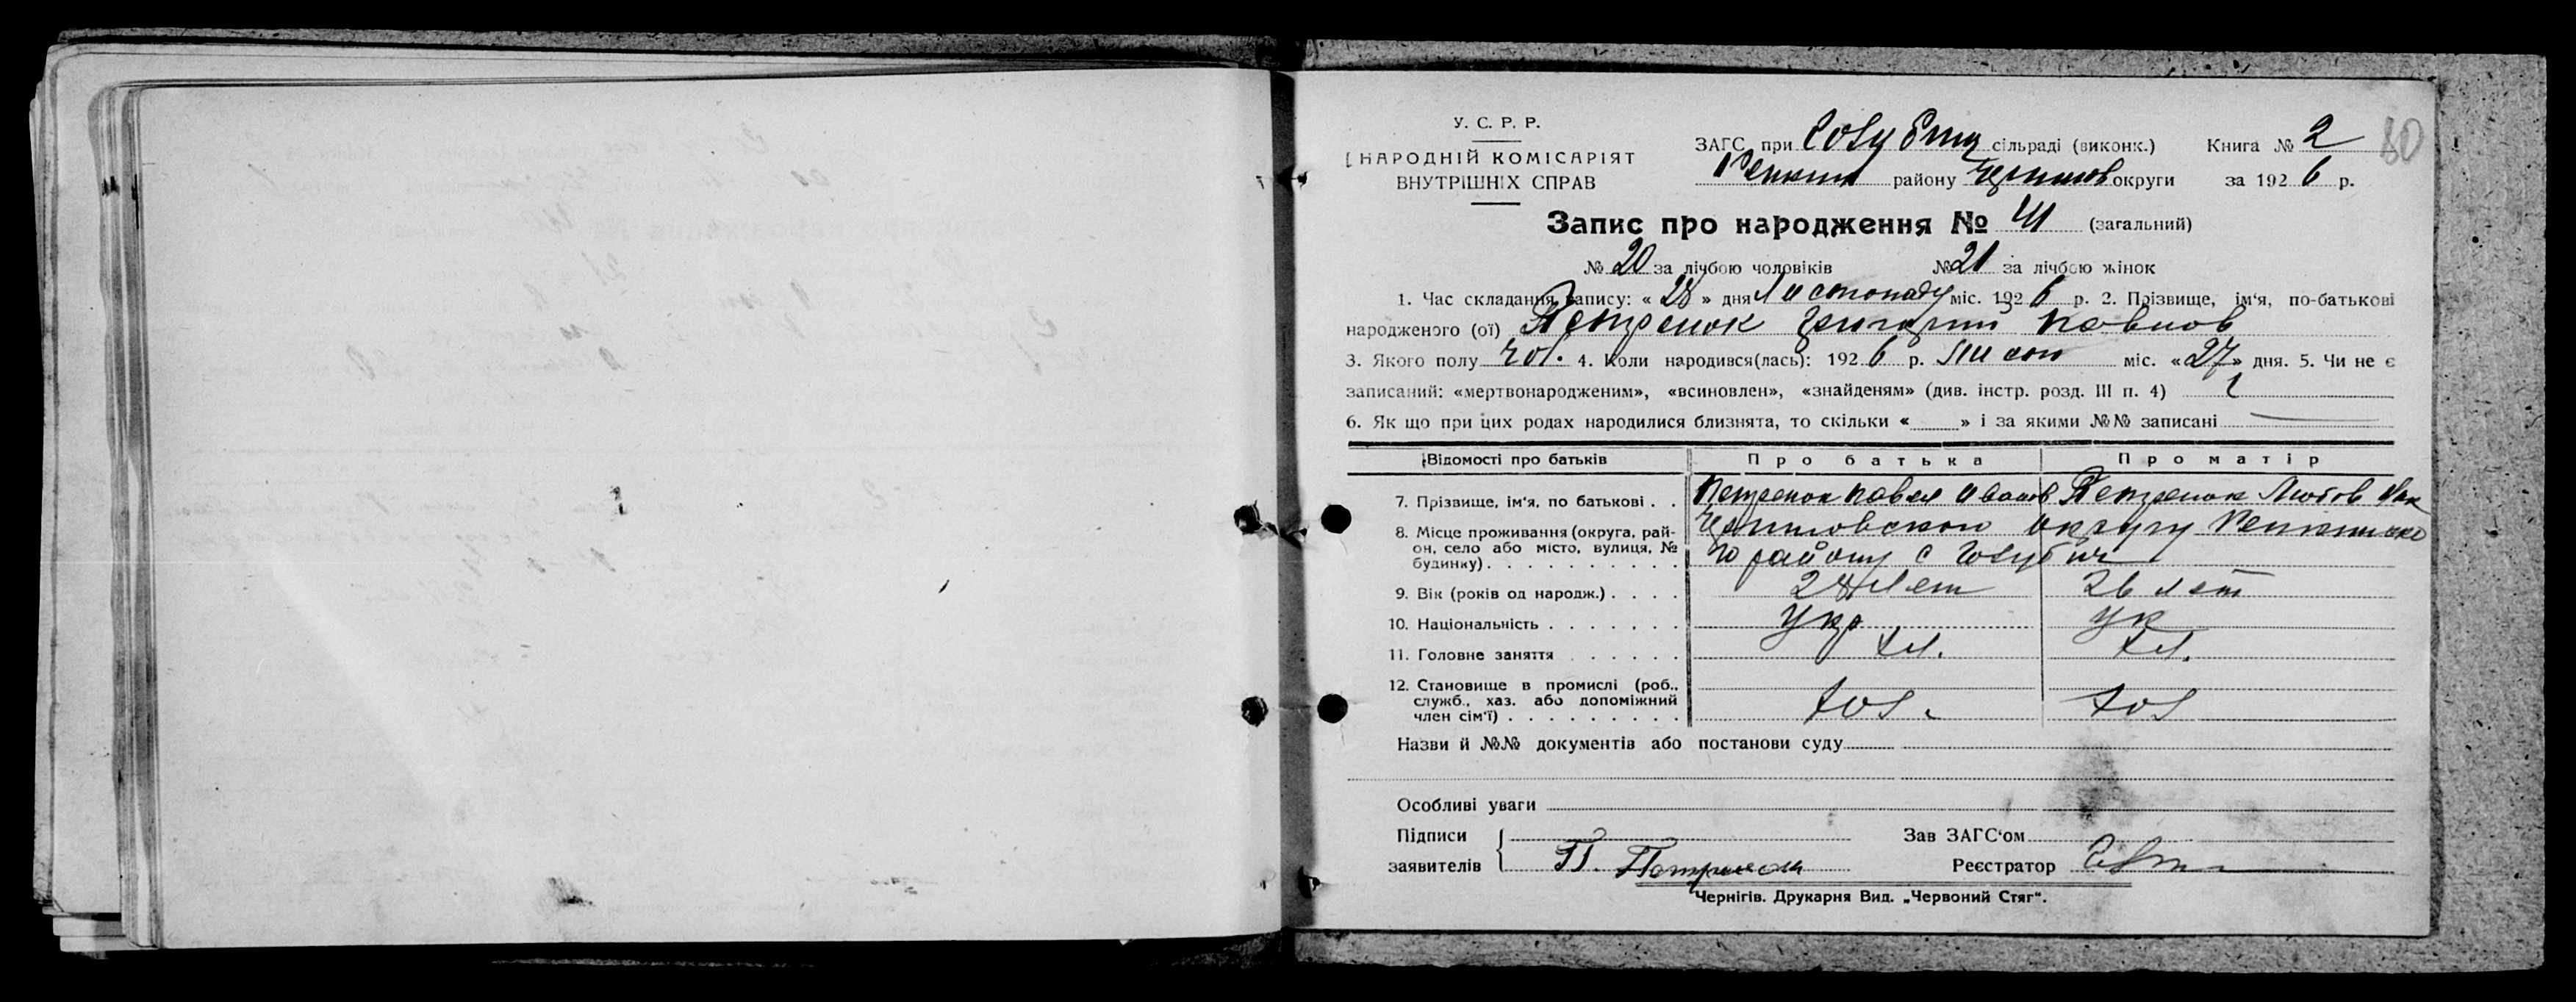 У. С. Р. Р.
НАРОДНІЙ КОМІСАРІЯТ
ВНУТРІШНІХ СПРАВ
ЗАГС при Голубич сільраді (виконк.) Книга № 2 80
Репкин району Чернигов округи за 1926 р.
Запис про народження № 41 (загальний)
№ 20 за лічбою чоловіків № 21 за лічбою жінок
1. Час складання запису: «28» дня Листопаду міс. 1926 р. 2. Прізвище, ім'я, по-батькові
народженого (ої) Петренок Григорий Павлов
3. Якого полу чол. 4. Коли народився(лась): 1926 р. міс. «27» дня. 5. Чи не є
записаний: «мертвонародженим», «всиновлен», «знайденям» (див. інстр. розд. III п. 4)
6. Як що при цих родах народилися близнята, то скільки « » і за якими №№ записані
Відомості про батьків Про батька Про матір
7. Прізвище, ім'я, по батькові . . Петренок Павел Иванов Петренок Любов
8. Місце проживання (округа, рай-
он, село або місто, вулиця, №
будинку) . . . . . . . . . .
Черниговскою округу Репкинско
го району с Голубич
9. Вік (років од народж.) . . . . лет 26 лет
10. Національність . . . . . . . Укр Ук
11. Головне заняття . . . . . . хл. хл.
12. Становище в промислі (роб.,
служб., хаз. або допоміжний
член сім'ї) . . . . . . . . .
Назви й №№ документів або постанови суду
Особливі уваги
Підписи Зав ЗАГС'ом
заявителів П. Петренок Реєстратор
Чернігів. Друкарня Вид. „Червоний Стяг".